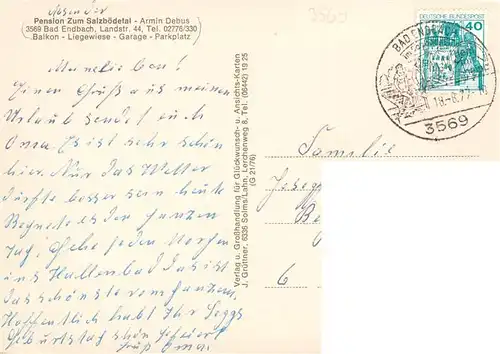 Absender
Pension Zum Salzbödetal - Armin Debus
3569 Bad Endbach, Landstr. 44, Tel. 02776/330
Balkon - Liegewiese - Garage - Parkplatz
Einen Gruß aus meinen
Urlaub sendet euch
Oma. Es ist sehr schön
hier. Nur das Wetter
dürfte besser sein heute
Regnete es den ganzen
Tag, Gehe jeden Morgen
ins Hallenbad das ist
das schönste vom ganzen.
Hoffentlich habt Ihr
Geburtstag schön gefeiert
Gruß Oma.
Verlag u. Großhandlung für Glückwunsch- u. Ansichts-Karten
J. Grüttner, 6336 Solms/Lahn, Lerchenweg 6, Tel. (06442) 18 25
(G 21/76)
3560
DEUTSCHE BUNDESPOST
40
BAD ENDBACH
18.-8.77
3569
Familie
6